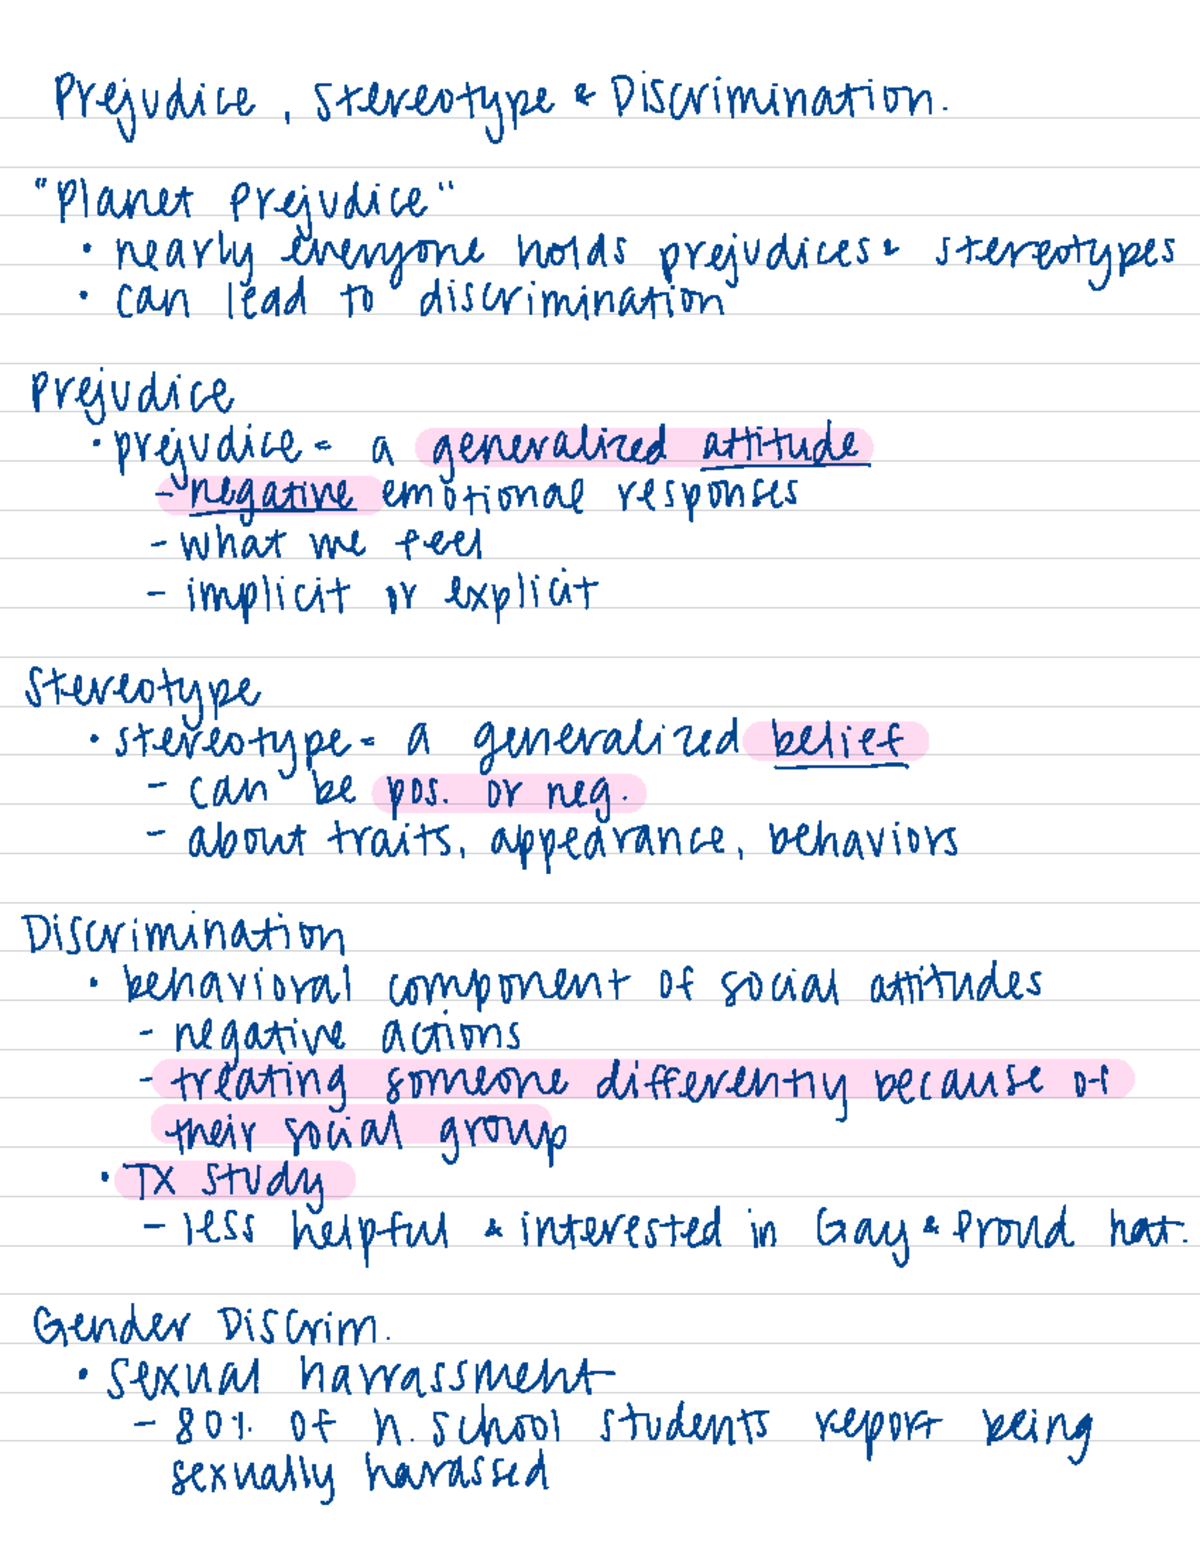 Prejudice, Stereotype & Discrimination.
"Planet Prejudice"
• nearly everyone holds prejudices & stereotypes
• can lead to discrimination
Prejudice
• prejudice = a generalized attitude
- negative emotional responses
- what we feel
- implicit or explicit
Stereotype
• stereotype = a generalized belief
- can be pos. or neg.
- about traits, appearance, behaviors
Discrimination
• behavioral component of social attitudes
- negative actions
- treating someone differently because of
their social group
• TX study
- less helpful & interested in Gay & Proud hat.
Gender Discrim.
• sexual harrassment
- 80% of h. school students report being
sexually harassed